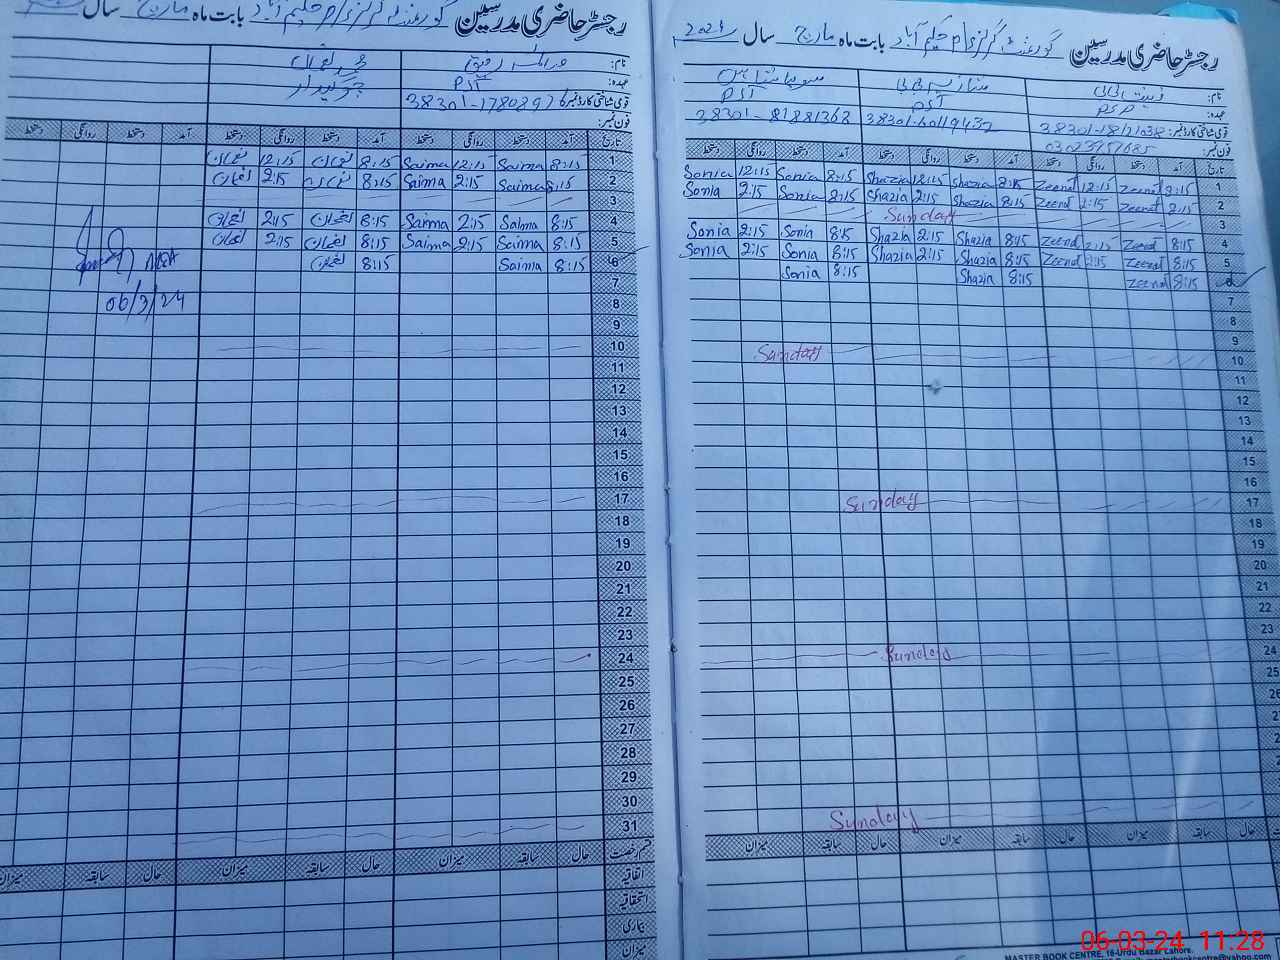 رجسٹر حاضری مدرسین گورنمنٹ گرلز حکیم آباد بابت ماہ مارچ سال 2024
نام:
عہدہ: PST PST
قومی شناختی کارڈ نمبر:
فون نمبر:
تاریخ آمد دستخط روانگی دستخط آمد دستخط روانگی دستخط آمد دستخط روانگی دستخط
1 8:15 Zeenat 12:15 Zeenat 8:15 Shazia 12:15 Shazia 8:15 Sonia 12:15 Sonia
2 8:15 Zeenat 2:15 Zeenat 8:15 Shazia 2:15 Shazia 8:15 Sonia 2:15 Sonia
3 Sunday
4 8:15 Zeenat 2:15 Zeenat 8:15 Shazia 2:15 Shazia 8:15 Sonia 2:15 Sonia
5 8:15 Zeenat 2:15 Zeenat 8:15 Shazia 2:15 Shazia 8:15 Sonia 2:15 Sonia
6 8:15 Zeenat 8:15 Shazia 8:15 Sonia
7
8
9
10 Sunday
11
12
13
14
15
16
17 Sunday
18
19
20
21
22
23
24 Sunday
25
26
Sunday
حال سابقہ میزان حال سابقہ میزان حال سابقہ میزان
MASTER BOOK CENTRE, 16-Urdu Bazar Lahore.
06-03-24 11:28
رجسٹر حاضری مدرسین گورنمنٹ گرلز حکیم آباد بابت ماہ مارچ سال
نام:
عہدہ: PST چوکیدار
قومی شناختی کارڈ نمبر: 38301-1780897
فون نمبر:
تاریخ آمد دستخط روانگی دستخط آمد دستخط روانگی دستخط آمد دستخط روانگی دستخط
1 8:15 Saima 12:15 Saima 8:15 لقمان 12:15 لقمان
2 8:15 Saima 2:15 Saima 8:15 لقمان 2:15 لقمان
3
4 8:15 Saima 2:15 Saima 8:15 لقمان 2:15 لقمان
5 8:15 Saima 2:15 Saima 8:15 لقمان 2:15 لقمان
6 8:15 Saima 8:15 لقمان
7
06/3/24
8
9
10
11
12
13
14
15
16
17
18
19
20
21
22
23
24
25
26
27
28
29
30
31
قسم رخصت حال سابقہ میزان حال سابقہ میزان حال سابقہ میزان
اتفاقیہ
استحقاقیہ
بیماری
میزان